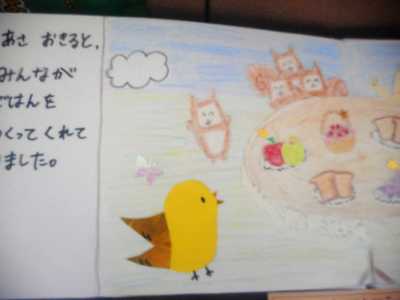 あさ おきると、
みんなが
ごはんを
つくってくれて
ました。